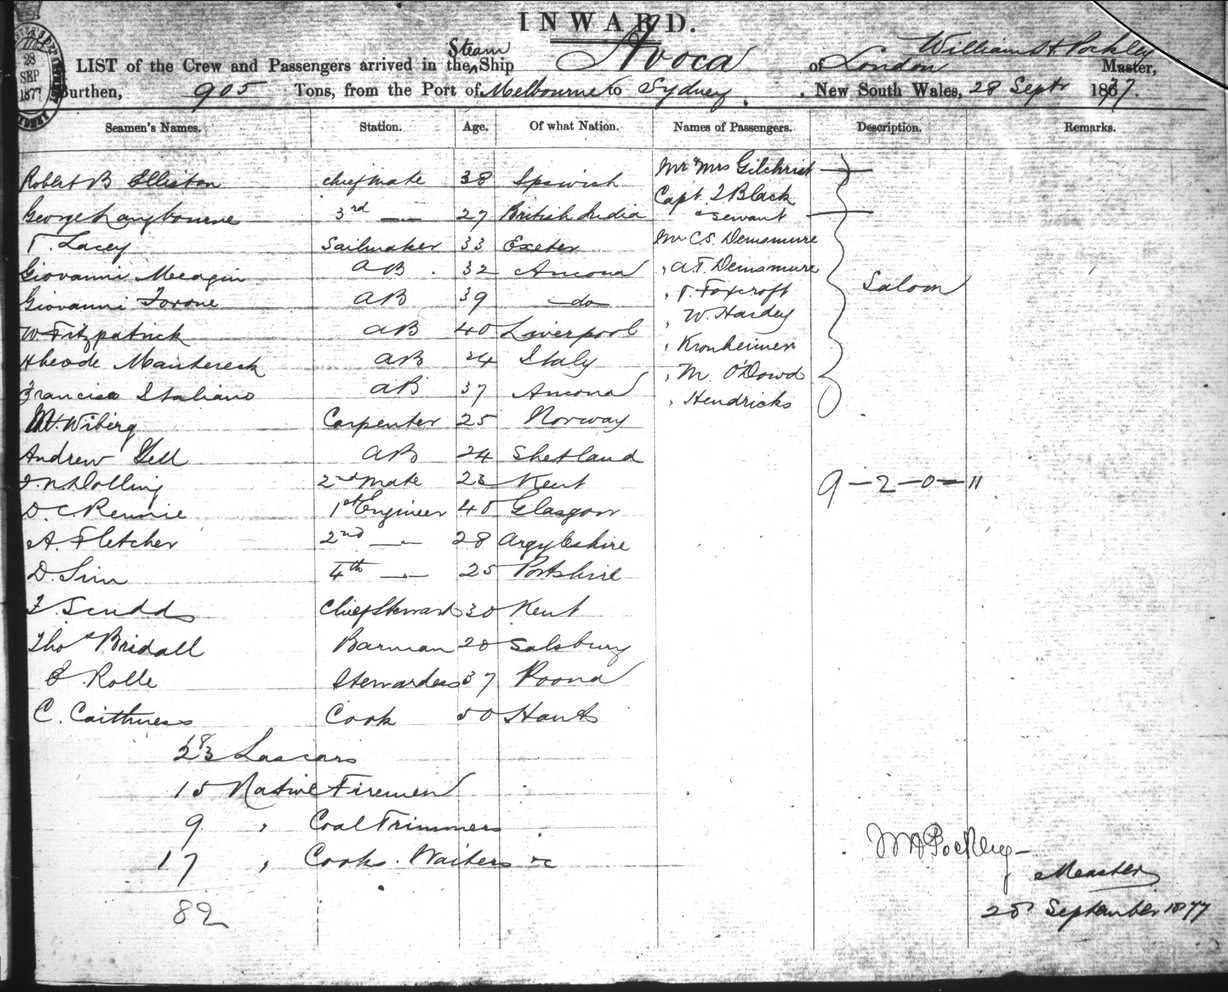 INWARD.
LIST of the Crew and Passengers arrived in the Steam Ship Avoca of London William H Pockley Master,
Burthen, 905 Tons, from the Port of Melbourne to Sydney, New South Wales, 28 Septr 1877.
28 SEP 1877
Seamen's Names. Station. Age. Of what Nation. Names of Passengers. Description. Remarks.
Robert B Elliston chief mate 38 Ipswich Mr & Mrs Gilchrist
George Langbourne 3rd — 27 British India Capt. J Black
& servant
T. Lacey Sailmaker 33 Exeter Mr C S. Densmure
Giovanni Meagin AB. 32 Ancona " A. T. Densmure
Giovanni Torone AB 39 do " T. Foxcroft Saloon
W. Fitzpatrick AB 40 Liverpool " W Hardey
AB 24 Italy " Kronheimer
Francisco Italiano AB 37 Ancona " M. O'Dowd
M. Wiberg Carpenter 25 Norway " Hendricks
Andrew Yell AB 24 Shetland
J. N. Dolling 2nd mate 23 Kent 9-2-0-11
D. C Rennie 1st Engineer 40 Glasgow
A. Fletcher 2nd — 28 Argyleshire
D. Sim 4th — 25
F. Scudds Chief Steward 30 Kent
Thos Bridall Barman 20 Salsbury
E. Rolle Stewardess 37 Poona
C. Caithness Cook 50 Hants
23 Lascars
15 Native Firemen
9 " Coal Trimmers
17 " Cooks. Waiters &c
82
W H Pockley
Master
28 September 1877